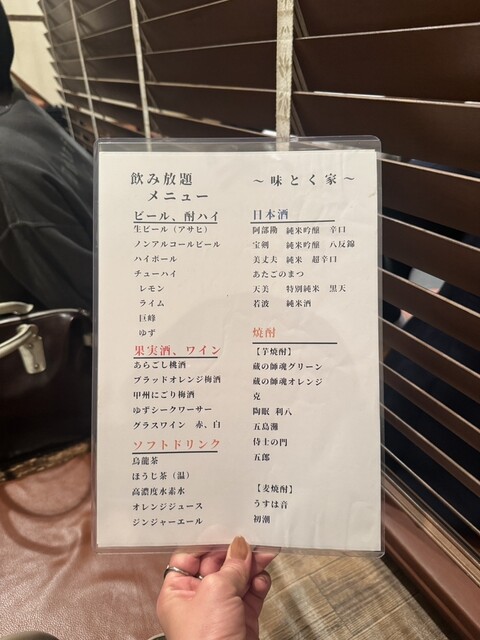 飲み放題
メニュー
～味とく家～
ビール、酎ハイ
生ビール（アサヒ）
ノンアルコールビール
ハイボール
チューハイ
レモン
ライム
巨峰
ゆず
果実酒、ワイン
あらごし桃酒
ブラッドオレンジ梅酒
甲州にごり梅酒
ゆずシークワーサー
グラスワイン 赤、白
ソフトドリンク
烏龍茶
ほうじ茶（温）
高濃度水素水
オレンジジュース
ジンジャーエール
日本酒
阿部勘 純米吟醸 辛口
宝剣 純米吟醸 八反錦
美丈夫 純米 超辛口
あたごのまつ
天美 特別純米 黒天
若波 純米酒
焼酎
【芋焼酎】
蔵の師魂グリーン
蔵の師魂オレンジ
克
陶眠 利八
五島灘
侍士の門
五郎
【麦焼酎】
うすは音
初潮